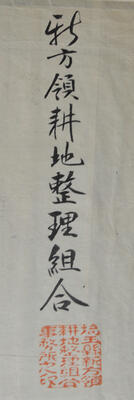 新方領耕地整理組合
埼玉縣新方領
耕地整理組合
事務所之印